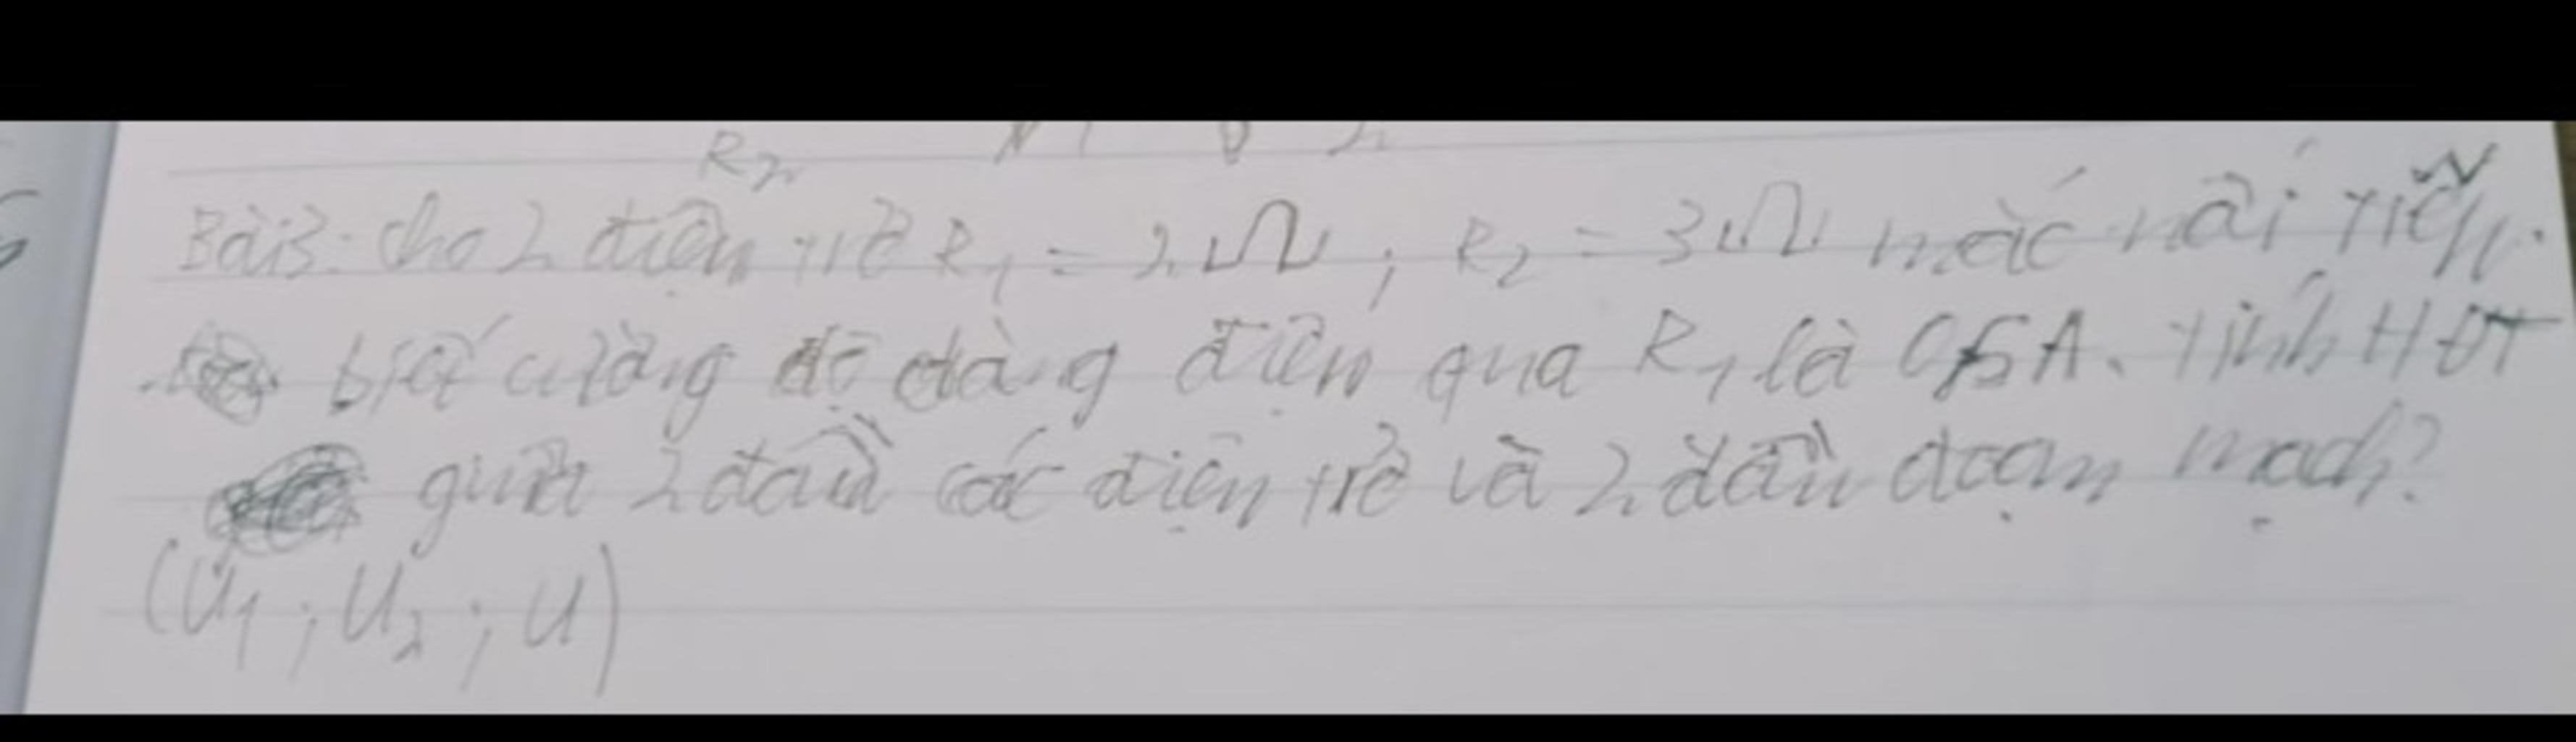 R2
Bài 3: cho 2 điện trở R1 = 2Ω; R2 = 3Ω mắc nối tiếp.
biết cường độ dòng điện qua R1 là 0,5A. Tính HĐT
giữa 2 đầu các điện trở và 2 đầu đoạn mạch?
(U1; U2; U)